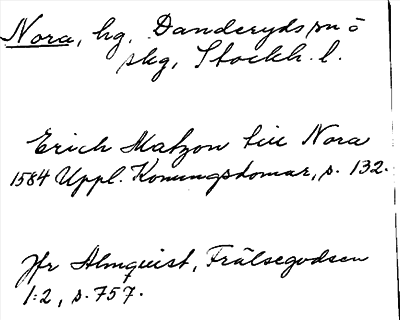 Nora, hg, Danderyds sn o
skg, Stockh. l.
Erich Matzon till Nora
1584 Uppl. Konungsdomar, s. 132.
Jfr Almquist, Frälsegodsen
1:2, s. 757.